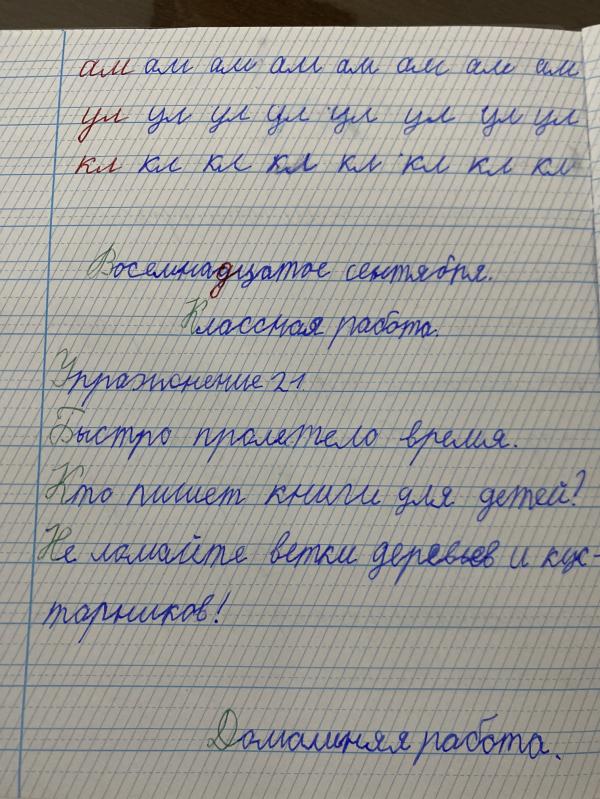 ам ам ам ам ам ам ам ам
ул ул ул ул ул ул ул ул
кл кл кл кл кл кл кл кл
Восемнадцатое сентября.
Классная работа.
Упражнение 21
Быстро пролетело время.
Кто пишет книги для детей?
Не ломайте ветки деревьев и кус-
тарников!
Домашняя работа.